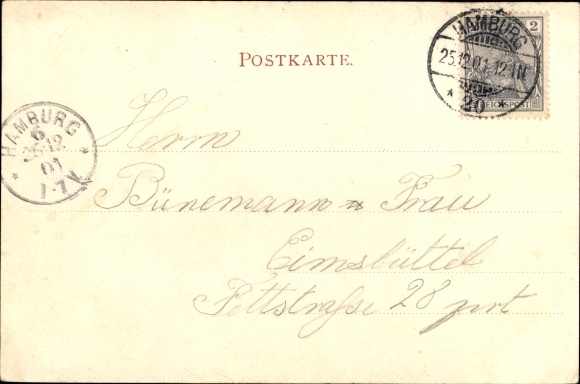 POSTKARTE.
HAMBURG
25.12.01.12-1N
* 20 *
2
REICHSPOST
HAMBURG
6
12
01
1-7V
Herrn
Bünemann u Frau
Eimsbüttel
Fettstraße 28 prt